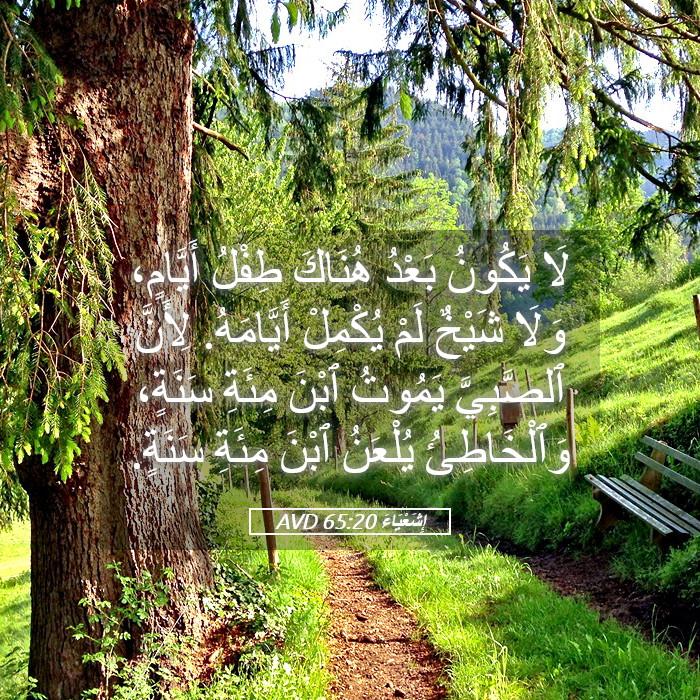 لَا يَكُونُ بَعْدُ هُنَاكَ طِفْلُ أَيَّامٍ،
وَلَا شَيْخٌ لَمْ يُكْمِلْ أَيَّامَهُ. لِأَنَّ
ٱلصَّبِيَّ يَمُوتُ ٱبْنَ مِئَةِ سَنَةٍ،
وَٱلْخَاطِئُ يُلْعَنُ ٱبْنَ مِئَةِ سَنَةٍ.
إِشَعْيَاءَ 65:20 AVD